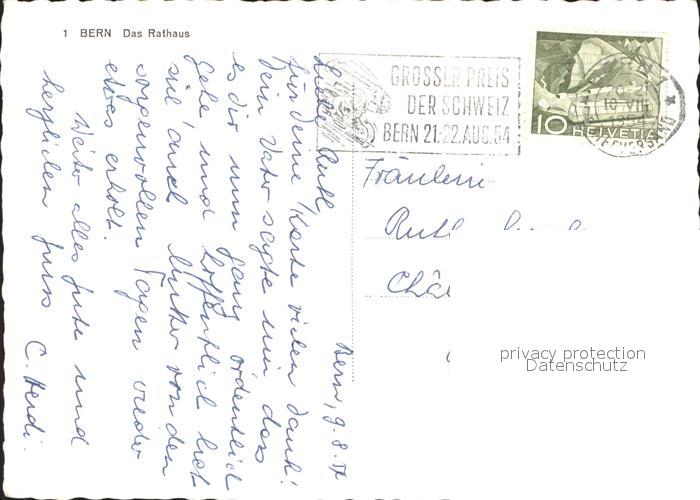 1 BERN Das Rathaus
GROSSER PREIS
DER SCHWEIZ
BERN 21-22. AUG. 54
10 HELVETIA
10. VIII
1954
Fräulein
Ruth
Châ
privacy protection
Datenschutz
Bern, 9. 8. 54
Liebe Ruth
für Deine Karte vielen Dank!
Dein Vater sagte mir dass
es dir nun ganz ordentlich
gehe und hoffentlich hat
sie auch Mutter von den
sorgenvollen Tagen wieder
etwas erholt.
Weiter alles Gute und
herzlichen Gruss C. Herdi.